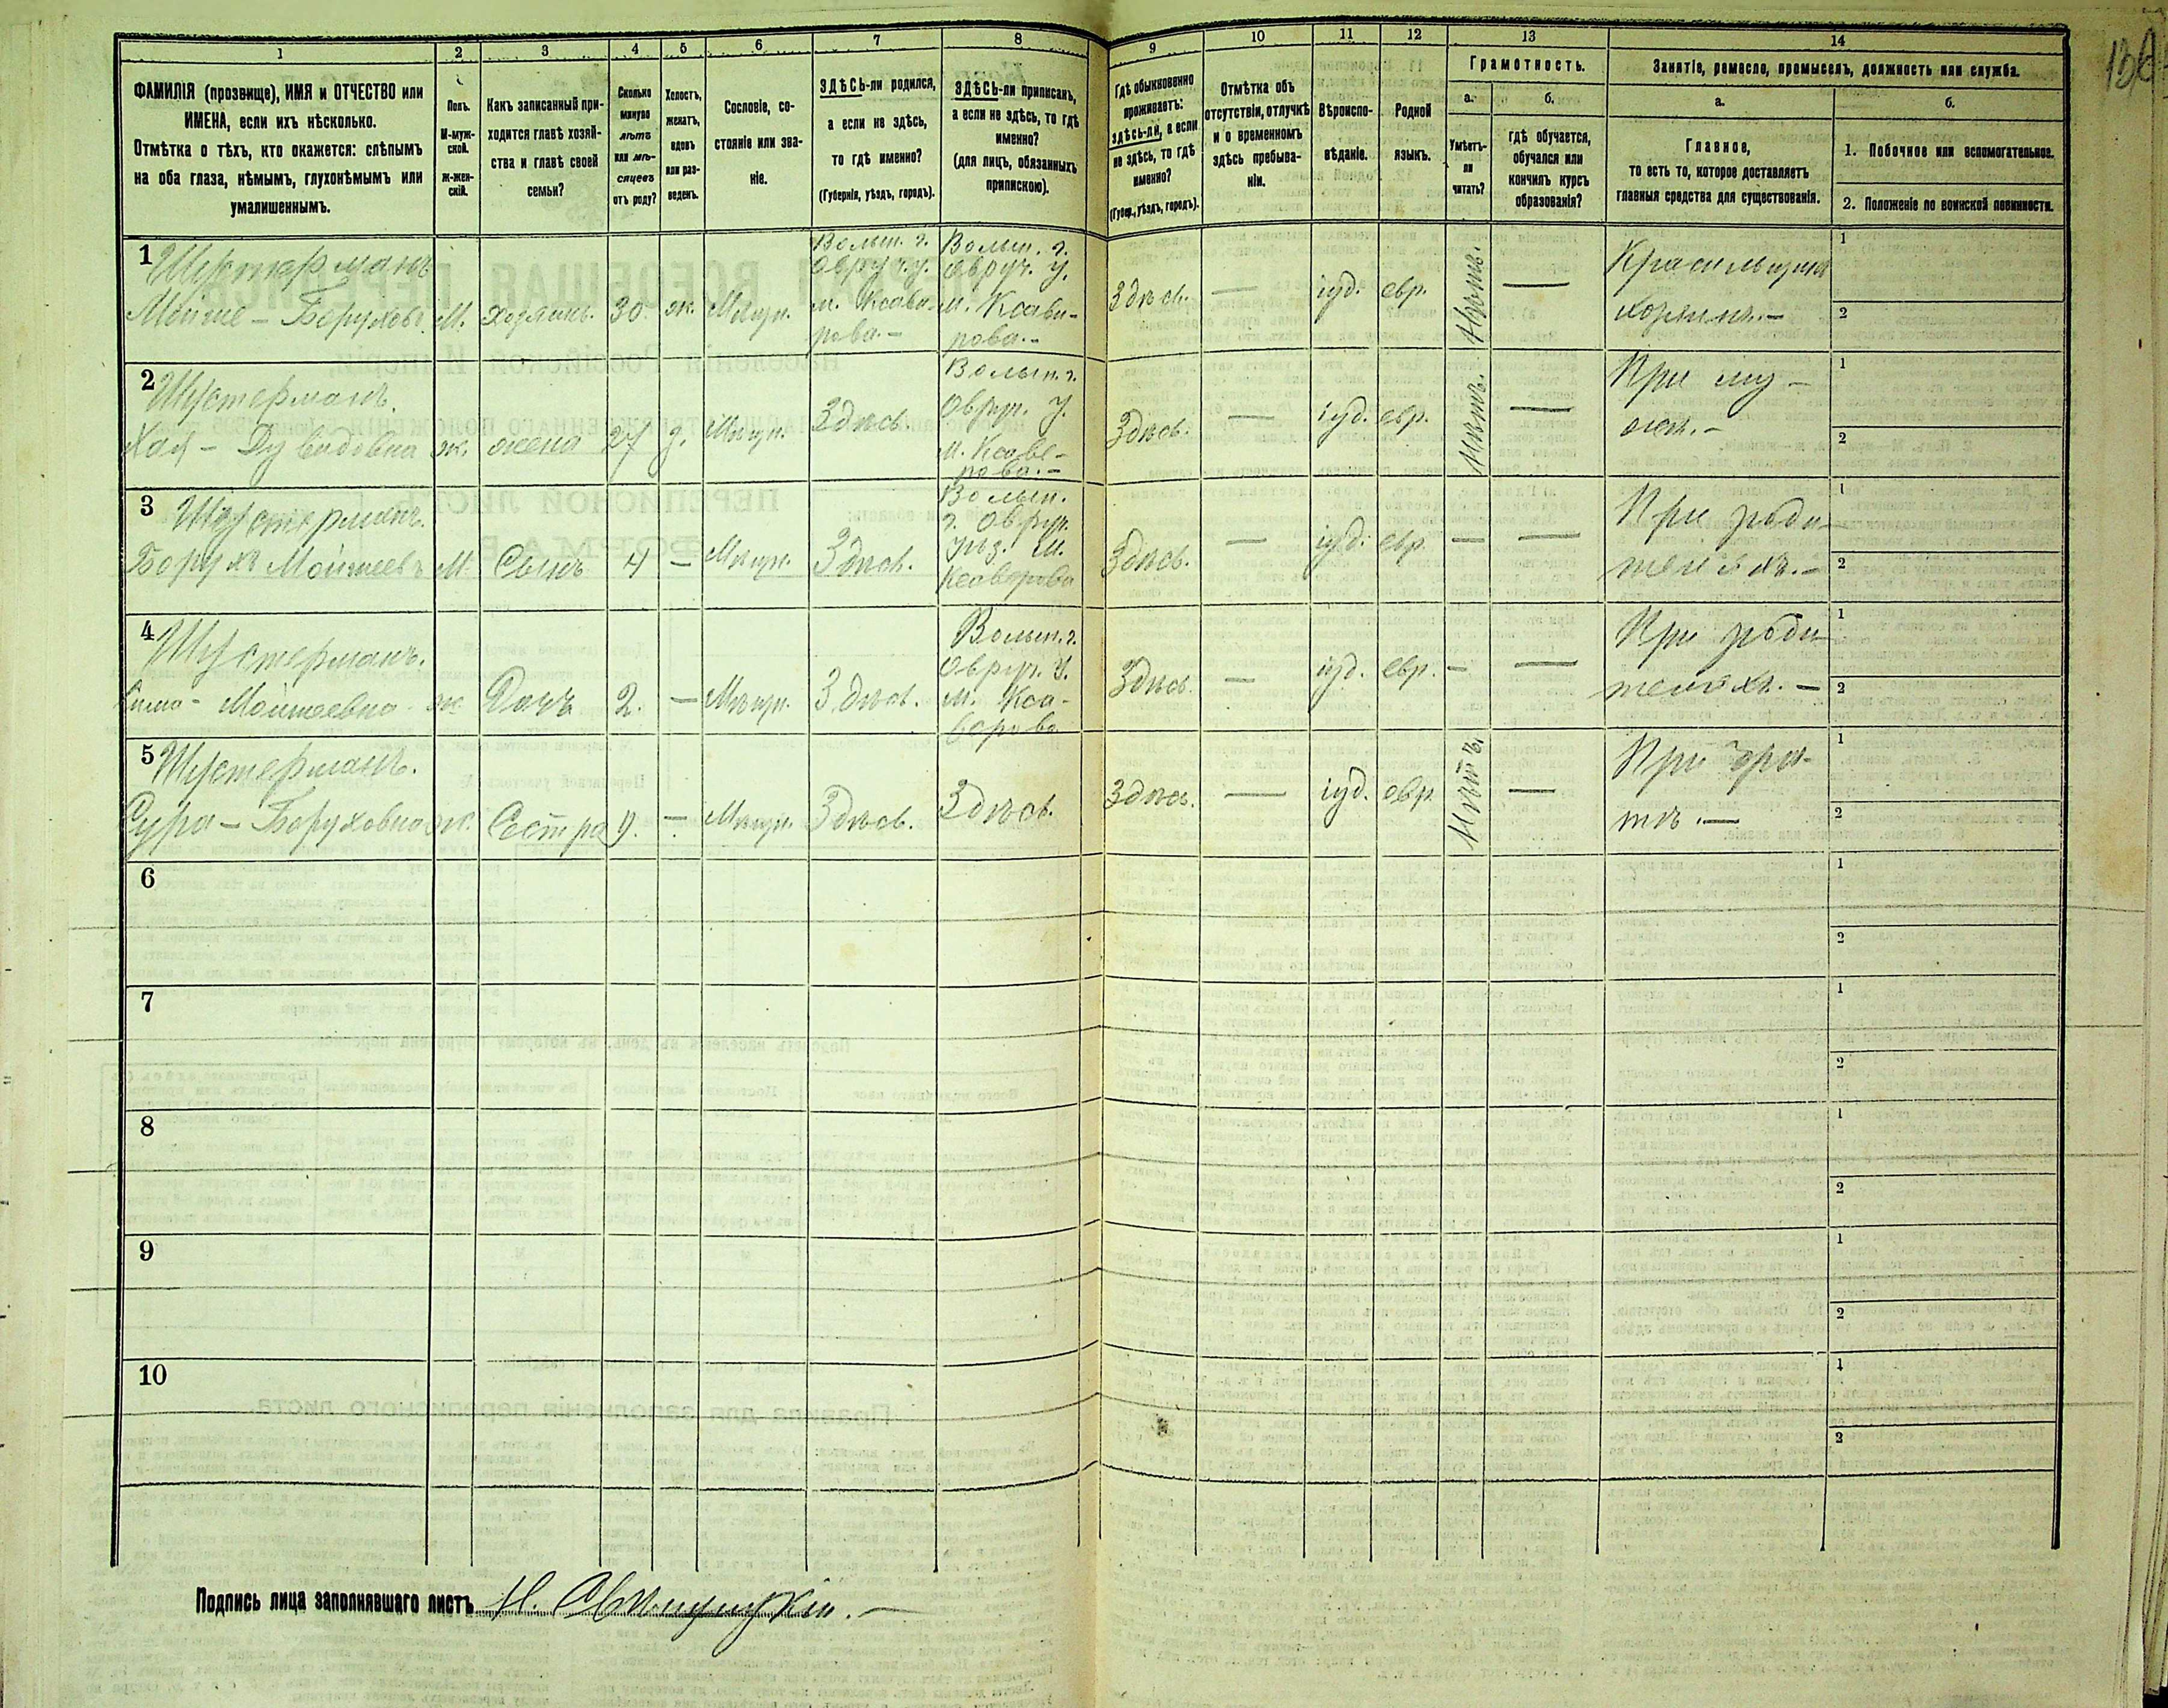 1 2 3 4 5 6 7 8 9 10 11 12 13 14
ФАМИЛІЯ (прозвище), ИМЯ и ОТЧЕСТВО или
ИМЕНА, если ихъ нѣсколько.
Отмѣтка о тѣхъ, кто окажется: слѣпымъ
на оба глаза, нѣмымъ, глухонѣмымъ или
умалишеннымъ.
Полъ.
М-муж-
ской.
ж-жен-
скій.
Какъ записанный при-
ходится главѣ хозяй-
ства и главѣ своей
семьи?
Сколько
минуло
лѣтъ
или мѣ-
сяцевъ
отъ роду?
Холостъ,
женатъ,
вдовъ
или раз-
веденъ.
Сословіе, со-
стояніе или зва-
ніе.
ЗДѢСЬ-ли родился,
а если не здѣсь,
то гдѣ именно?
(Губернія, уѣздъ, городъ).
ЗДѢСЬ-ли приписанъ,
а если не здѣсь, то гдѣ
именно?
(для лицъ, обязанныхъ
припискою).
Гдѣ обыкновенно
проживаетъ:
здѣсь-ли, а если
не здѣсь, то гдѣ
именно?
(Губер., уѣздъ, городъ).
Отмѣтка объ
отсутствіи, отлучкѣ
и о временномъ
здѣсь пребыва-
ніи.
Вѣроиспо-
вѣданіе.
Родной
языкъ.
Грамотность.
а.
Умѣетъ-
ли
читать?
б.
гдѣ обучается,
обучался или
кончилъ курсъ
образованія?
Занятіе, ремесло, промыселъ, должность или служба.
а.
Главное,
то есть то, которое доставляетъ
главныя средства для существованія.
б.
1. Побочное или вспомогательное.
2. Положеніе по воинской повинности.
1 Шустерманъ
Мойше - Боруховъ М. Хозяинъ. 30. ж. Мѣщ.
Волын. г.
Овруч. у.
м. Ксаве-
рова. -
Волын. г.
Овруч. у.
м. Ксаве-
рова. -
Здѣсь. — іуд. евр. Нѣтъ. —
Красильщикъ
хозяинъ. -
1
2
2 Шустерманъ.
Хая - Дувидовна ж. жена 27 з. Мѣщ. Здѣсь.
Волын. г.
Овруч. у.
м. Ксаве-
рова. -
Здѣсь. — іуд. евр. Нѣтъ. —
При му-
жѣ. -
1
2
3 Шустерманъ.
Борухъ Мойшеевъ М. Сынъ 4 — Мѣщ. Здѣсь.
Волын.
г. Овруч.
уѣз. м.
Ксаверова
Здѣсь. — іуд. евр. — —
При роди-
теляхъ. -
1
2
4 Шустерманъ.
Мойшеевна ж. Дочь 2. — Мѣщ. Здѣсь.
Волын. г.
Овруч. у.
м. Кса-
верова
Здѣсь. — іуд. евр. — —
При роди-
теляхъ. -
1
2
5 Шустерманъ.
Сура - Боруховна ж. Сестра 9. — Мѣщ. Здѣсь. Здѣсь.
Здѣсь. — іуд. евр. Нѣтъ. —
При бра-
тѣ. —
1
2
6
1
2
7
1
2
8
1
2
9
1
2
10
1
2
Подпись лица заполнявшаго листъ